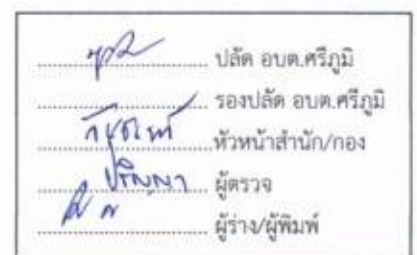 ปลัด อบต.ศรีภูมิ
รองปลัด อบต.ศรีภูมิ
หัวหน้าสำนัก/กอง
ปริญญา ผู้ตรวจ
ผู้ร่าง/ผู้พิมพ์